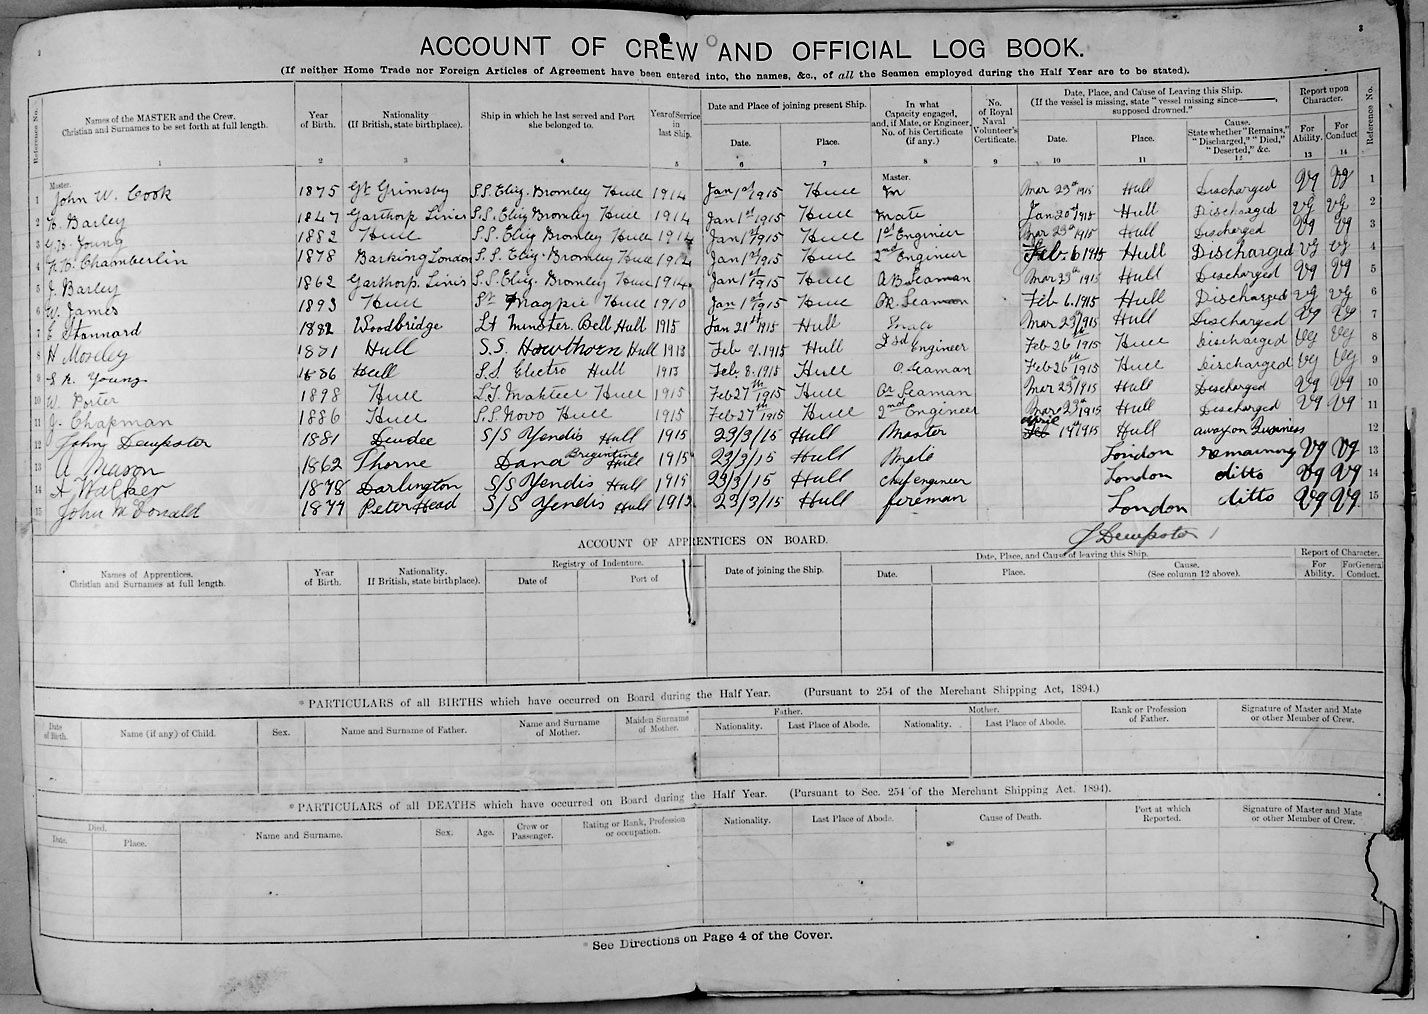 2
3
ACCOUNT OF CREW AND OFFICIAL LOG BOOK.
(If neither Home Trade nor Foreign Articles of Agreement have been entered into, the names, &c., of all the Seamen employed during the Half Year are to be stated).
Reference No. Names of the MASTER and the Crew. Christian and Surnames to be set forth at full length. Year of Birth. Nationality (If British, state birthplace). Ship in which he last served and Port she belonged to. Year of Service in last Ship. Date and Place of joining present Ship. In what Capacity engaged, and, if Mate, or Engineer, No. of his Certificate (if any.) No. of Royal Naval Volunteer's Certificate. Date, Place, and Cause of Leaving this Ship. (If the vessel is missing, state "vessel missing since———, supposed drowned." Report upon Character. Reference No.
Date. Place. Date. Place. Cause. State whether "Remains," "Discharged," "Died," "Deserted," &c. For Ability. For Conduct
1 2 3 4 5 6 7 8 9 10 11 12 13 14
Master. Master.
1 John W. Cook 1875 Gt Grimsby S.S. Eliz. Bromley Hull 1914 Jan 1st 1915 Hull Mar 23rd 1915 Hull Discharged Vg Vg 1
2 Barley 1847 Garthorp Lincs S.S. Eliz Bromley Hull 1914 Jan 1st 1915 Hull Mate Jan 20th 1915 Hull Discharged Vg Vg 2
3 Young 1882 Hull S.S. Eliz Bromley Hull 1914 Jan 1st 1915 Hull 1st Engineer Mar 23rd 1915 Hull Discharged Vg Vg 3
4 Chamberlin 1878 Barking London S.S. Eliz. Bromley Hull 1914 Jan 1st 1915 Hull 2nd Engineer Feb. 6 1915 Hull Discharged Vg Vg 4
5 J. Barley 1862 Garthorp. Lincs S.S. Eliz. Bromley Hull 1914 Jan 1st 1915 Hull A B Seaman Mar 23rd 1915 Hull Discharged Vg Vg 5
6 W. James 1893 Hull Magpie Hull 1910 Jan 1st 1915 Hull Seaman Feb 6. 1915 Hull Discharged Vg Vg 6
7 E Stannard 1882 Woodbridge Lt Minster. Bell Hull 1915 Jan 21st 1915 Hull Mar 23/1915 Hull Discharged Vg Vg 7
8 H Moseley 1871 Hull S.S. Hawthorn Hull 1913 Feb 1915 Hull 3rd Engineer Feb 26th 1915 Hull Discharged Vg Vg 8
9 Young 1886 Hull S.S Electro Hull 1913 Feb. 8. 1915 Hull O Seaman Feb 26th 1915 Hull Discharged Vg Vg 9
10 W. Porter 1898 Hull Hull 1915 Feb 27th 1915 Hull Or Seaman Mar 23rd 1915 Hull Discharged Vg Vg 10
11 J. Chapman 1886 Hull S.S. Novo Hull 1915 Feb 27th 1915 Hull 2nd Engineer Mar 23rd 1915 Hull Discharged Vg Vg 11
12 John Dempster 1881 Dundee S/S Yendis Hull 1915 23/3/15 Hull Master April 19th 1915 Hull away on Business 12
13 A Mason 1862 Thorne Brigantine Hull 1915 23/3/15 Hull Mate London remaining Vg Vg 13
14 A Walker 1878 Darlington S/S Yendis Hull 1915 23/3/15 Hull Chf engineer London ditto Vg Vg 14
15 John McDonald 1877 Peter Head S/S Yendis Hull 1913 23/3/15 Hull fireman London ditto Vg Vg 15
J Dempster
ACCOUNT OF APPRENTICES ON BOARD.
Names of Apprentices. Christian and Surnames at full length. Year of Birth. Nationality. If British, state birthplace). Registry of Indenture. Date of joining the Ship. Date, Place, and Cause of leaving this Ship. Report of Character.
Date of Port of Date. Place. Cause. (See column 12 above). For Ability. For General Conduct.
*PARTICULARS of all BIRTHS which have occurred on Board during the Half Year. (Pursuant to 254 of the Merchant Shipping Act, 1894.)
Date of Birth. Name (if any) of Child. Sex. Name and Surname of Father. Name and Surname of Mother. Maiden Surname of Mother. Father. Mother. Rank or Profession of Father. Signature of Master and Mate or other Member of Crew.
Nationality. Last Place of Abode. Nationality. Last Place of Abode.
*PARTICULARS of all DEATHS which have occurred on Board during the Half Year. (Pursuant to Sec. 254 of the Merchant Shipping Act. 1894).
Died. Name and Surname. Sex. Age. Crew or Passenger. Rating or Rank, Profession or occupation. Nationality. Last Place of Abode. Cause of Death. Port at which Reported. Signature of Master and Mate or other Member of Crew.
Date. Place.
* See Directions on Page 4 of the Cover.